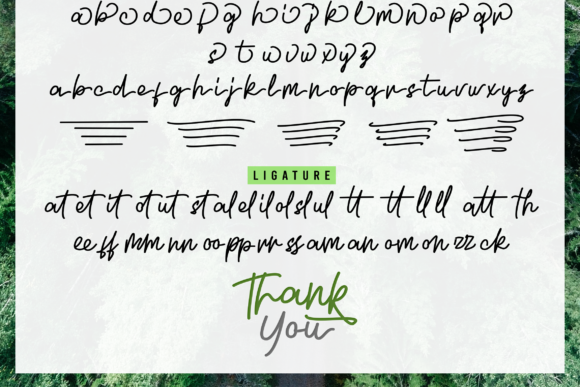 a b c d e f g h i j k l m n o p q r
s t u v w x y z
a b c d e f g h i j k l m n o p q r s t u v w x y z
LIGATURE
at et it ot ut st al el il ol sl ul tt tt ll ll att th
ee ff mm nn oo pp rr ss am an om on zz ck
Thank
You